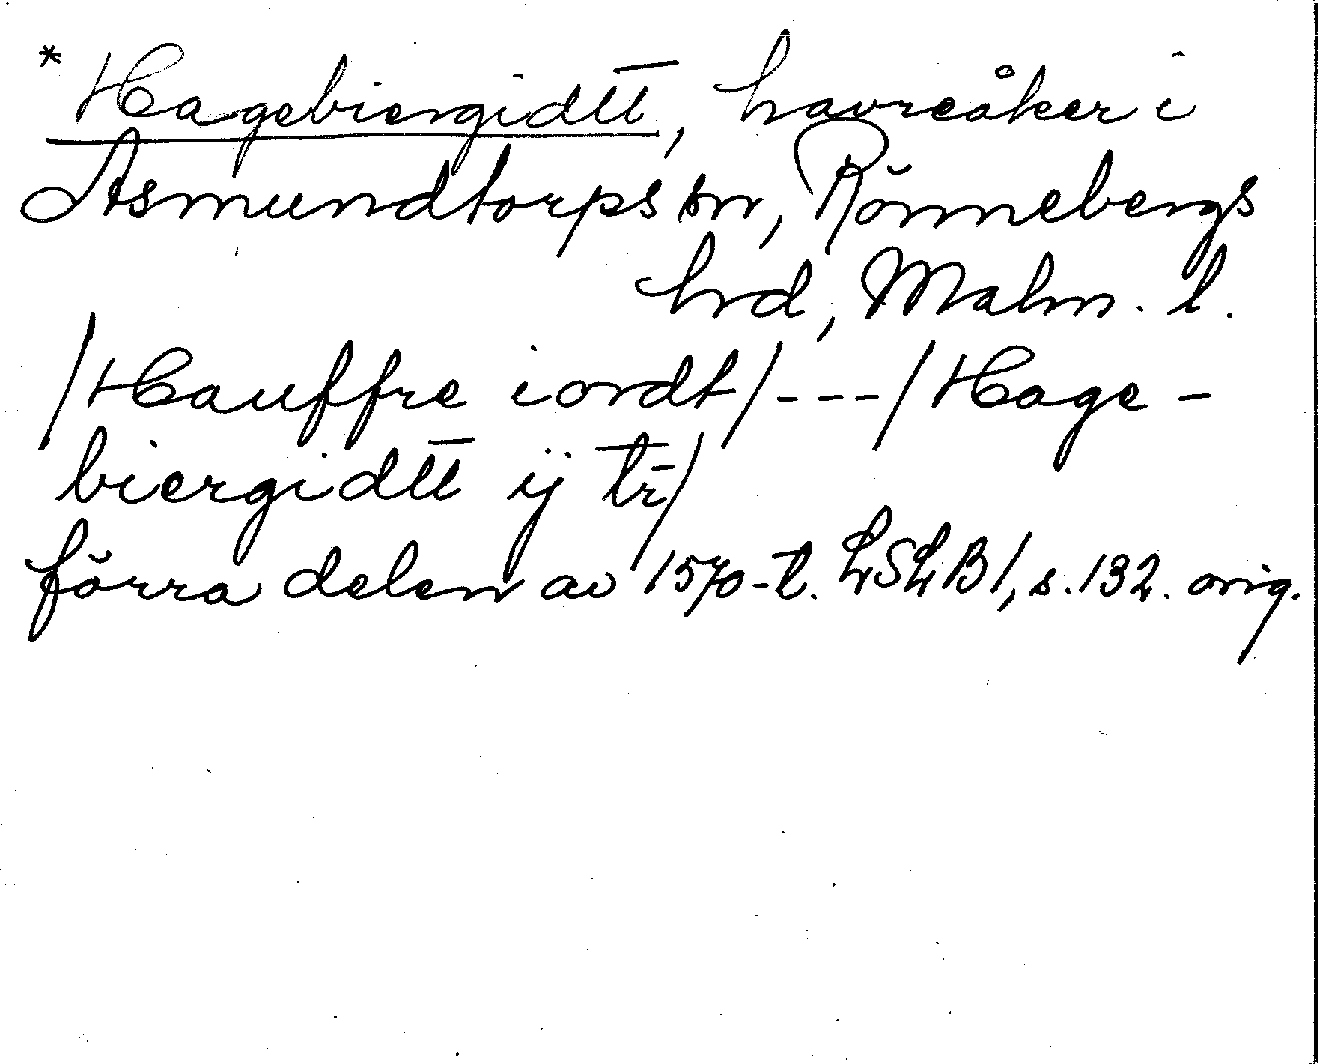 * Hagebiergidtt, havreåker i
Asmundtorps sn, Rönnebergs
hrd, Malm. l.
/Hauffre iordt/---/Hage-
biergidtt ij tr/
förra delen av 1570-t. LSLB1, s. 132. orig.